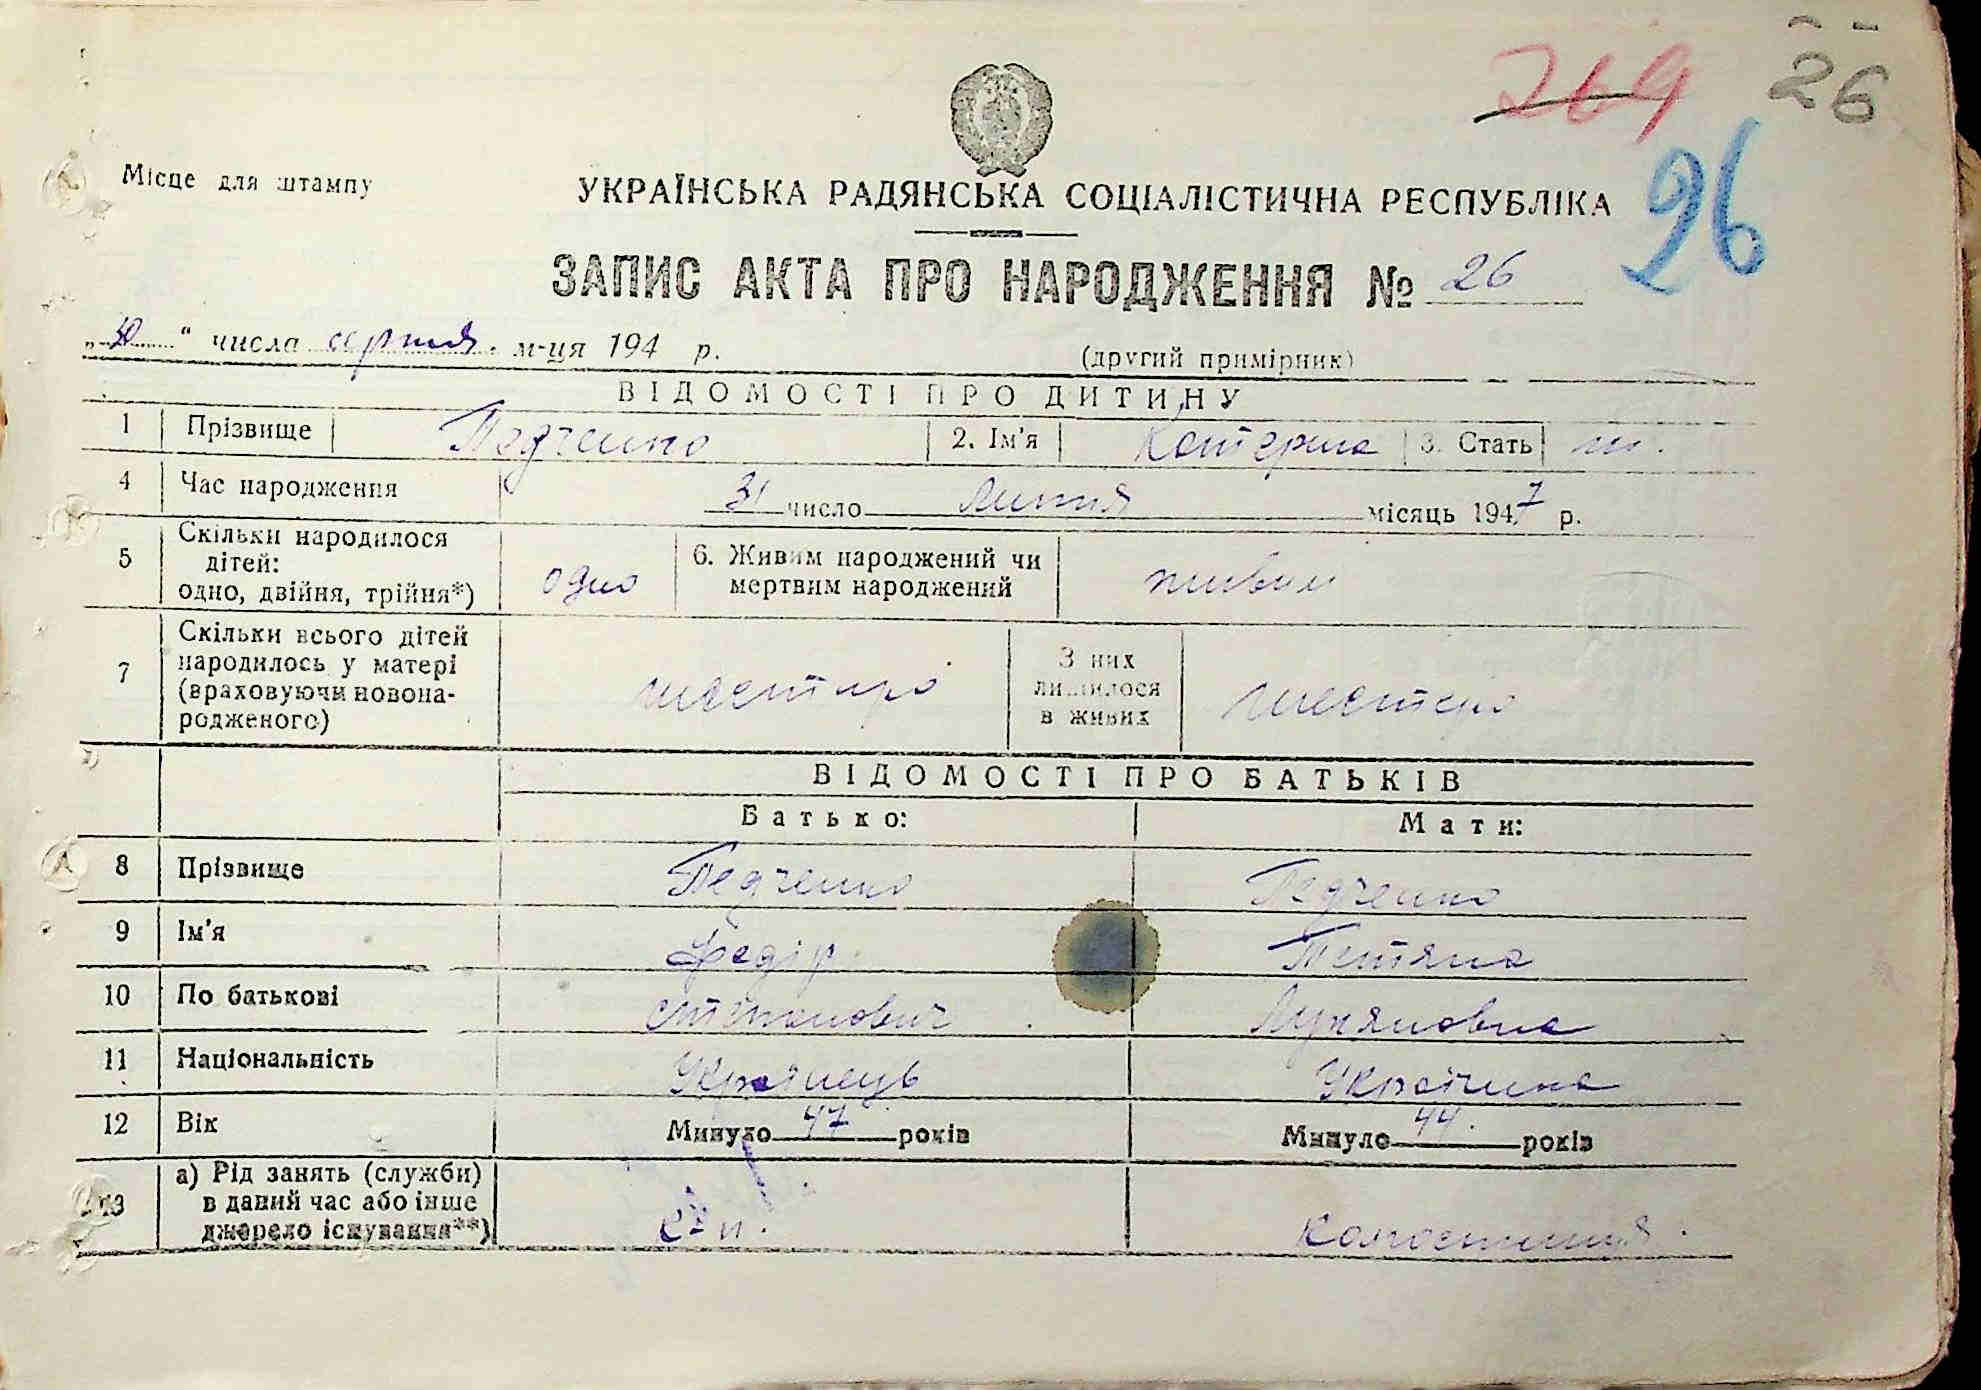 269 26
26
Місце для штампу
УКРАЇНСЬКА РАДЯНСЬКА СОЦІАЛІСТИЧНА РЕСПУБЛІКА
ЗАПИС АКТА ПРО НАРОДЖЕННЯ № 26
„ “ числа серпня м-ця 194 р.
(другий примірник)
ВІДОМОСТІ ПРО ДИТИНУ
1 Прізвище Педченко 2. Ім'я Катерина 3. Стать ж.
4 Час народження 31 число липня місяць 1947 р.
5 Скільки народилося дітей: одно, двійня, трійня*) одно 6. Живим народжений чи мертвим народжений живим
7 Скільки всього дітей народилось у матері (враховуючи новонародженого) шестиро З них лишилося в живих шестеро
ВІДОМОСТІ ПРО БАТЬКІВ
Батько: Мати:
8 Прізвище Педченко Педченко
9 Ім'я Федір Тетяна
10 По батькові Степанович Лукяновна
11 Національність Українець Українка
12 Вік Минуло 47 років Минуло 44 років
13 а) Рід занять (служби) в даний час або інше джерело існування**) колгоспниця